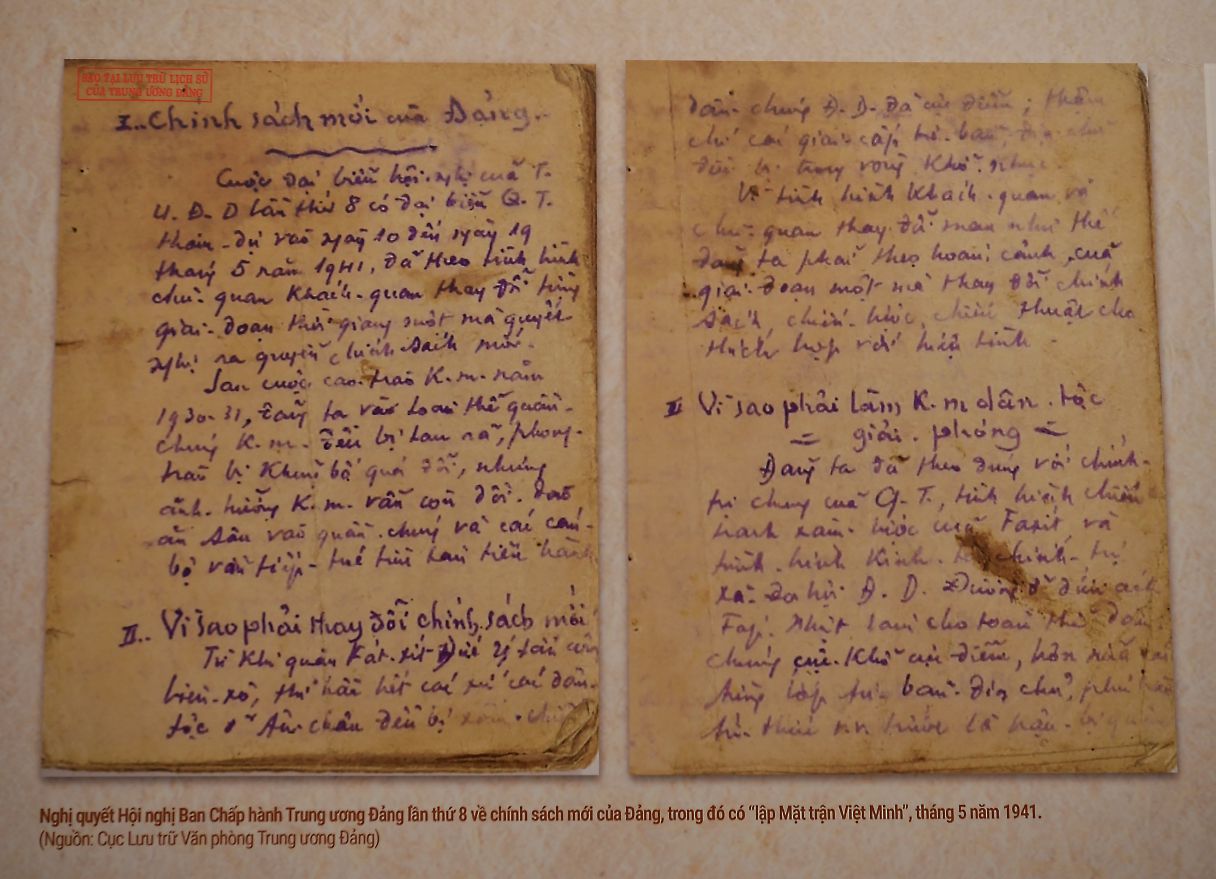 SAO TẠI LƯU TRỮ LỊCH SỬ
CỦA TRUNG ƯƠNG ĐẢNG
I.. Chính sách mới của Đảng..
Cuộc đại biểu hội nghị của T.
U. Đ. D lần thứ 8 có đại biểu Q. T.
tham-dự vào ngày 10 đến ngày 19
tháng 5 năm 1941, đã theo tình hình
chủ-quan khách-quan thay đổi từng
giai-đoạn thời gian mà quyết
nghị ra chính sách mới.
Sau cuộc cao-trào K.m. năm
1930-31, Đảng ta và toàn thể quần-
chúng K.m. đều bị tan rã, phong-
trào bị khủng bố quá đỗi, nhưng
ảnh-hưởng K.m. vẫn còn dồi-dào
ăn sâu vào quần-chúng và các cán-
bộ vẫn tiếp-tục
II.. Vì sao phải thay đổi chính sách mới
Từ khi quân Fát-xít Đức
hầu hết các xứ các dân-
tộc ở Âu-châu đều bị
dân-chúng Đ. D. đã cực điểm; thậm
chí cái giai-cấp tư-bản
khổ nhục.
Vì tình hình khách-quan và
chủ-quan thay đổi như thế
Đảng ta phải theo hoàn cảnh của
giai-đoạn một mà thay đổi chính
sách, chiến-lược, chiến thuật cho
thích hợp với hiện tình
II Vì sao phải làm K.m dân-tộc
= giải-phóng =
Đảng ta đã theo đúng với chính-
trị chung của Q.T., tình hình chiến
tranh xâm-lược của Faxít, và
tình-hình kinh-tế chính-trị
xã-hội Đ. D.
Nhật làm cho toàn thể dân
chúng cực-khổ cực điểm, hơn nữa
tầng lớp tư-bản-địa chủ, phú
Nghị quyết Hội nghị Ban Chấp hành Trung ương Đảng lần thứ 8 về chính sách mới của Đảng, trong đó có “lập Mặt trận Việt Minh”, tháng 5 năm 1941.
(Nguồn: Cục Lưu trữ Văn phòng Trung ương Đảng)